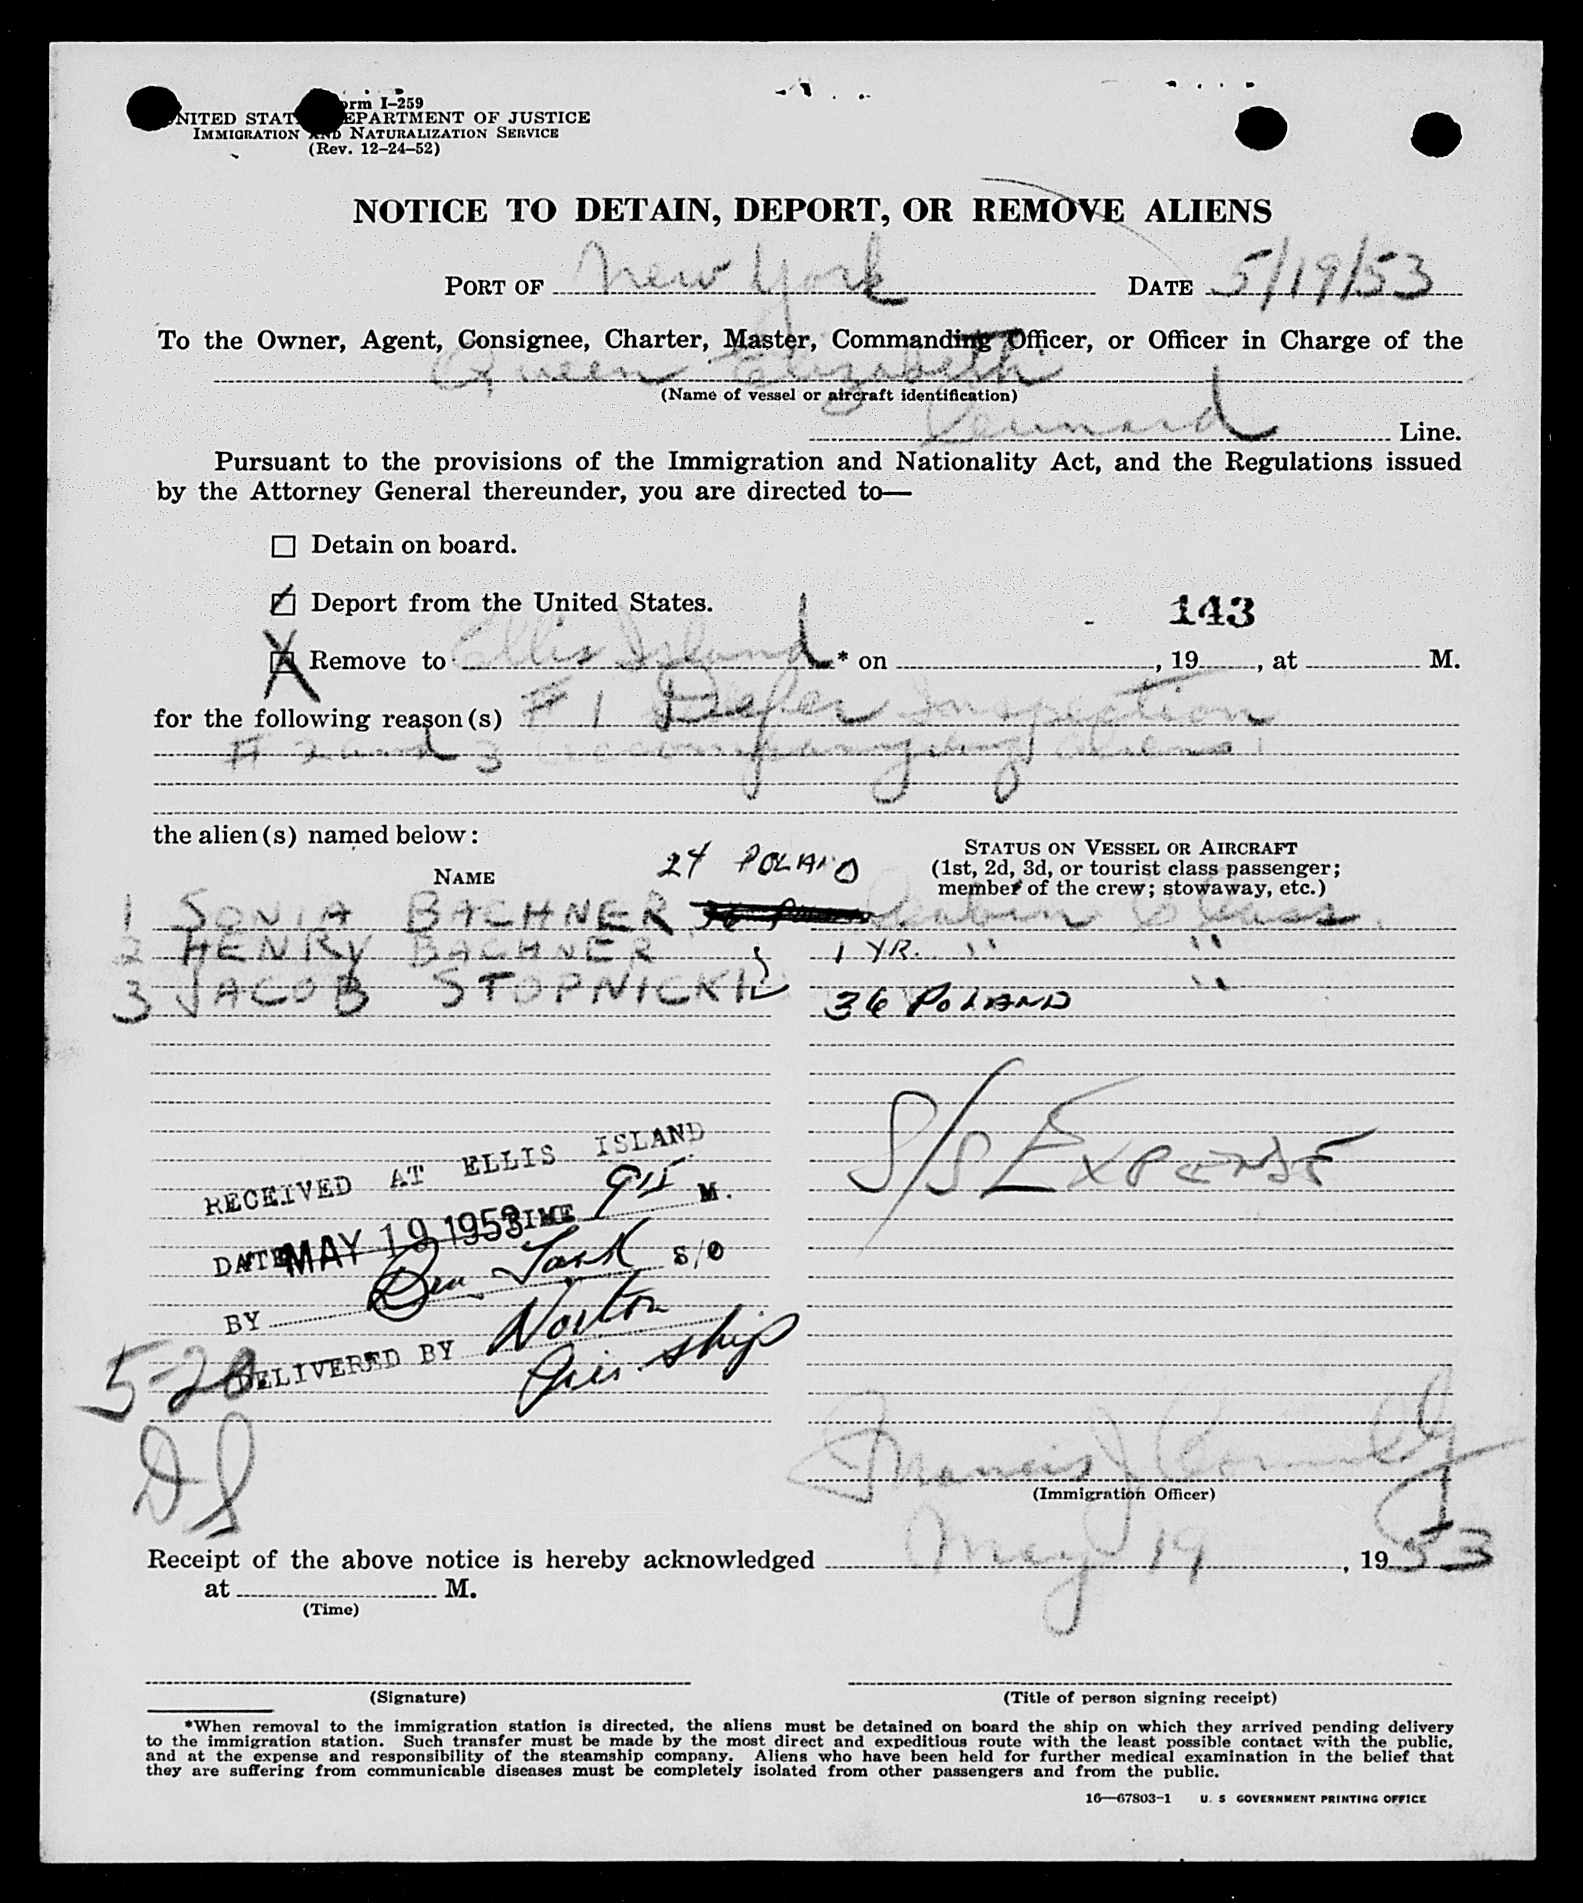 Form I-259
UNITED STATES DEPARTMENT OF JUSTICE
IMMIGRATION AND NATURALIZATION SERVICE
(Rev. 12-24-52)
NOTICE TO DETAIN, DEPORT, OR REMOVE ALIENS
PORT OF New York DATE 5/19/53
To the Owner, Agent, Consignee, Charter, Master, Commanding Officer, or Officer in Charge of the
Queen Elizabeth
(Name of vessel or aircraft identification)
Cunnard Line.
Pursuant to the provisions of the Immigration and Nationality Act, and the Regulations issued
by the Attorney General thereunder, you are directed to—
Detain on board.
Deport from the United States.
143
X Remove to Ellis Island * on , 19 , at M.
for the following reason(s) # 1 Defer Inspection
# 2 and 3 accompanying aliens.
the alien(s) named below:
STATUS ON VESSEL OR AIRCRAFT
(1st, 2d, 3d, or tourist class passenger;
member of the crew; stowaway, etc.)
NAME 24 POLAND
1 SONIA BACHNER Cabin Class.
2 HENRY BACHNER 1 YR. " "
3 JACOB STOPNICKI 36 POLAND "
S/S EXPENSE
RECEIVED AT ELLIS ISLAND
DATE MAY 19 1953 TIME 915 M.
BY Ben Jack S/O
DELIVERED BY Norton
ship
5-20
DS
Francis J Connolly
(Immigration Officer)
Receipt of the above notice is hereby acknowledged May 19, 1953
at M.
(Time)
(Signature) (Title of person signing receipt)
*When removal to the immigration station is directed, the aliens must be detained on board the ship on which they arrived pending delivery
to the immigration station. Such transfer must be made by the most direct and expeditious route with the least possible contact with the public,
and at the expense and responsibility of the steamship company. Aliens who have been held for further medical examination in the belief that
they are suffering from communicable diseases must be completely isolated from other passengers and from the public.
16—67803-1 U. S GOVERNMENT PRINTING OFFICE